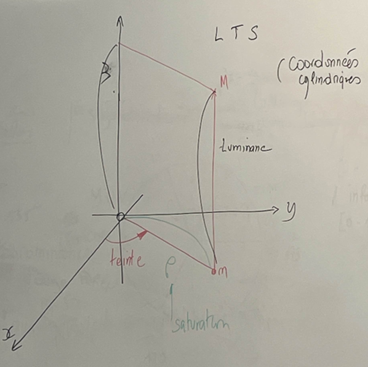 L T S
(Coordonnées
cylindriques
M
Luminance
y
teinte
ρ
m
saturation
x